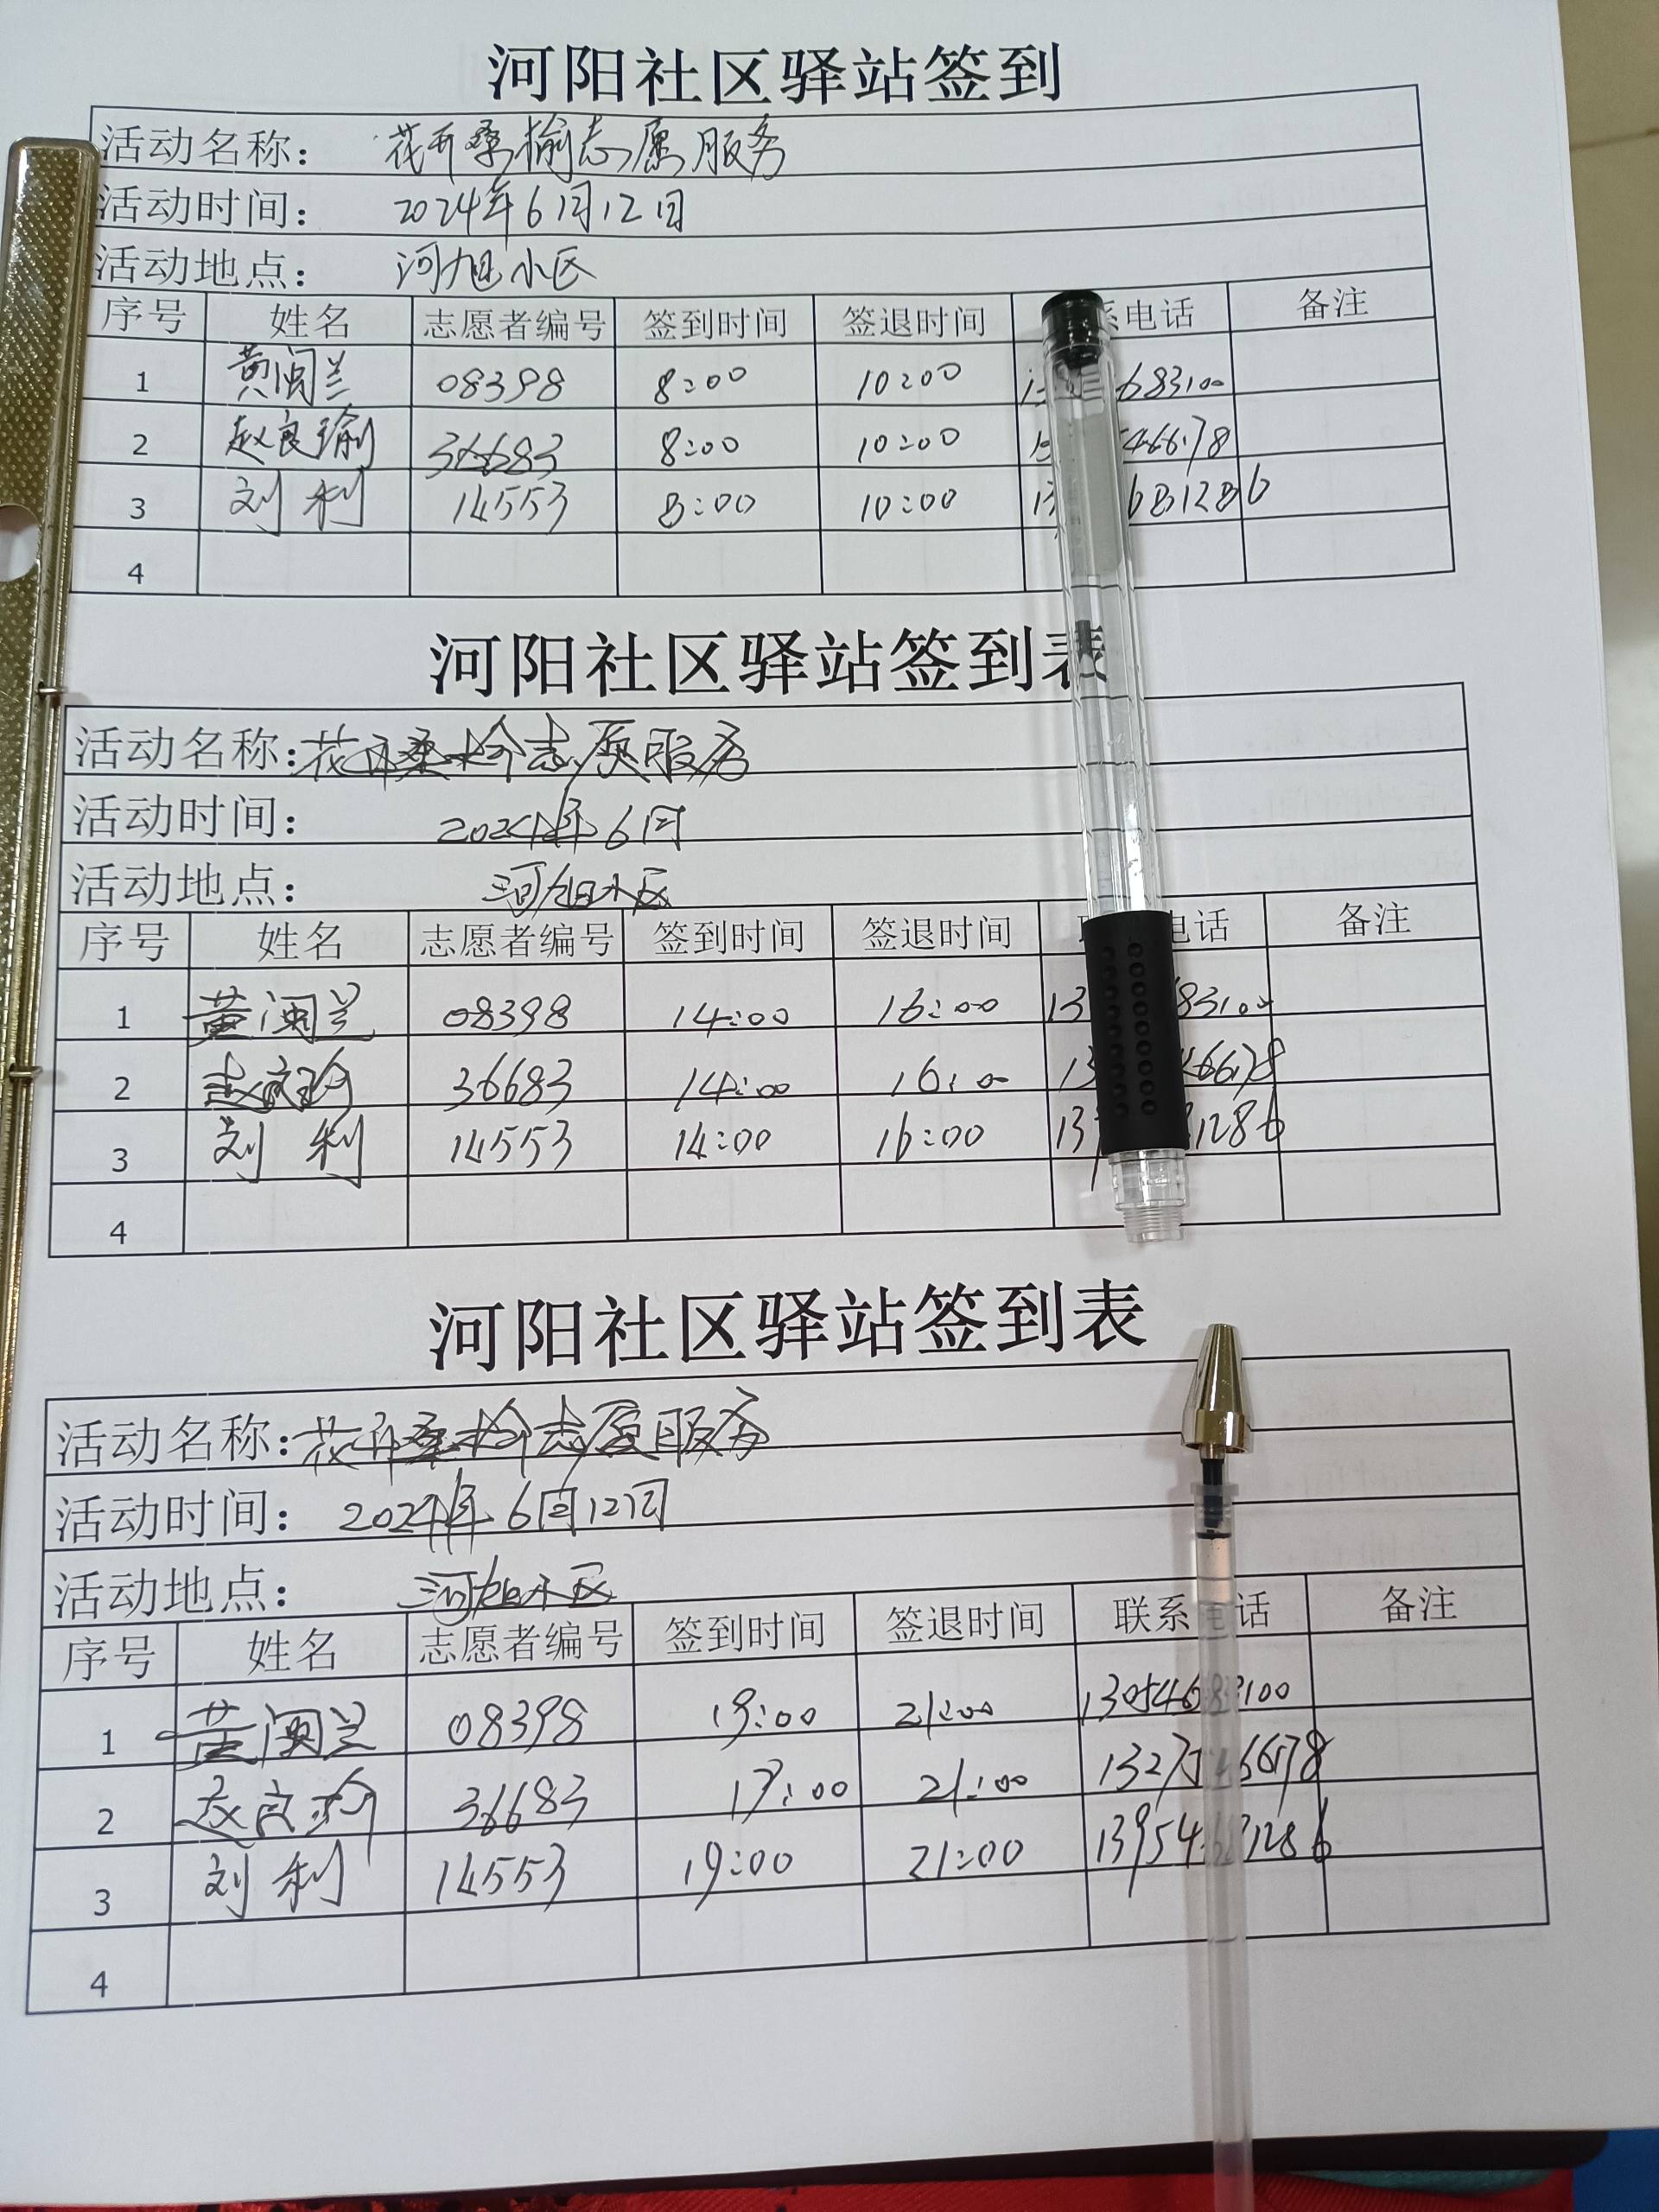 河阳社区驿站签到
活动名称： 花开桑榆志愿服务
活动时间： 2024年6月12日
活动地点： 河旭小区
序号 姓名 志愿者编号 签到时间 签退时间 系电话 备注
1 黄闽兰 08398 8:00 10:00 683100
2 赵良瑜 36683 8:00 10:00 466178
3 刘利 14553 8:00 10:00 681286
4
河阳社区驿站签到表
活动名称：花开桑榆志愿服务
活动时间： 2024年6月
活动地点： 河旭小区
序号 姓名 志愿者编号 签到时间 签退时间 电话 备注
1 黄闽兰 08398 14:00 16:00 13 83100
2 赵良瑜 36683 14:00 16:00 13 66178
3 刘利 14553 14:00 16:00 13 1286
4
河阳社区驿站签到表
活动名称：花开桑榆志愿服务
活动时间： 2024年6月12日
活动地点： 河旭小区
序号 姓名 志愿者编号 签到时间 签退时间 联系电话 备注
1 黄闽兰 08398 19:00 21:00 13054683100
2 赵良瑜 36683 19:00 21:00 13275466178
3 刘利 14553 19:00 21:00 13954681286
4